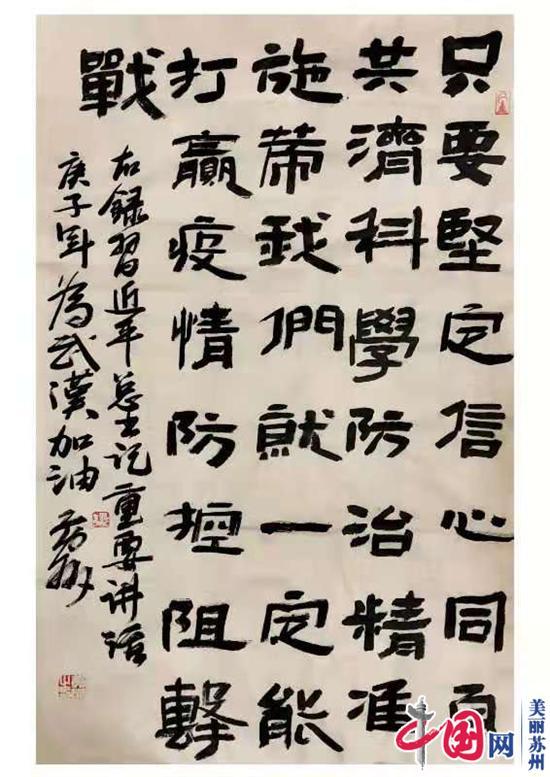 只要堅定信心同舟
共濟科學防治精准
施策我們就一定能
打贏疫情防控阻擊
戰
右錄習近平总书记重要讲话
庚子年為武漢加油
中国网
美丽苏州